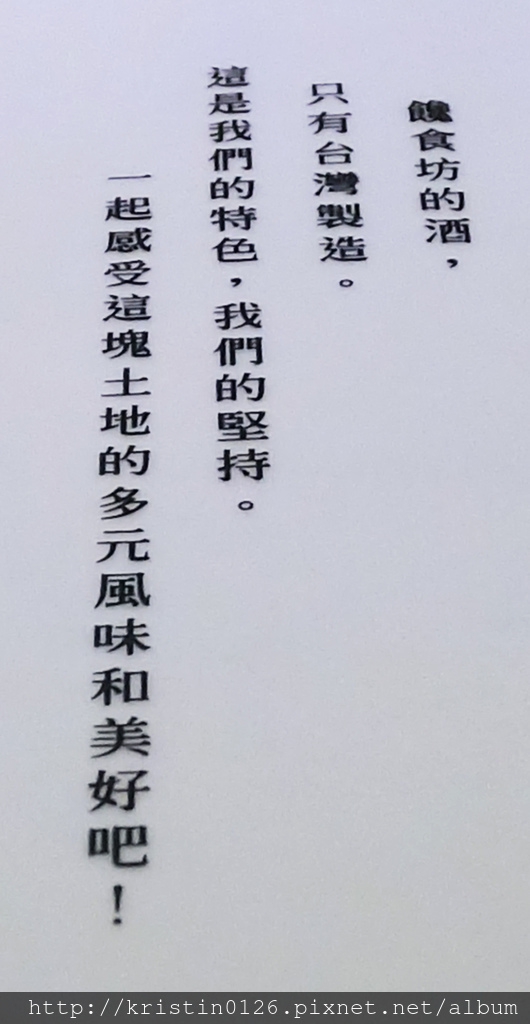 饞食坊的酒，
只有台灣製造。
這是我們的特色，我們的堅持。
一起感受這塊土地的多元風味和美好吧！
http://kristin0126.pixnet.net/album